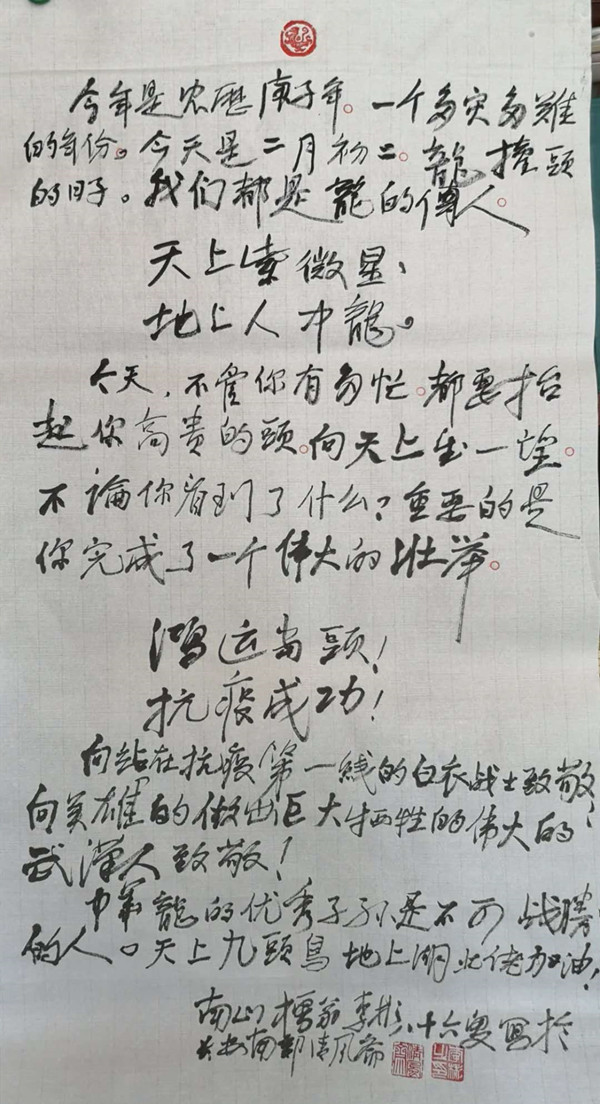 今年是农歷庚子年。一个多灾多難
的年份。今天是二月初二。龍擡頭
的日子。我们都是龍的傳人。
天上紫微星、
地上人中龍。
今天，不管你有多忙。都要抬
起你高贵的頭。向天上望一望。
不論你看到了什么？重要的是
你完成了一个偉大的壮举。
鴻运当頭！
抗疫成功！
向站在抗疫第一綫的白衣战士致敬！
向英雄的做出巨大牺牲的偉大的
武漢人致敬！
中華龍的优秀子孙是不可战勝
的人。天上九頭鳥地上湖北佬加油！
南山樗翁李彬八十六叟寫於
長安南郭清风斋